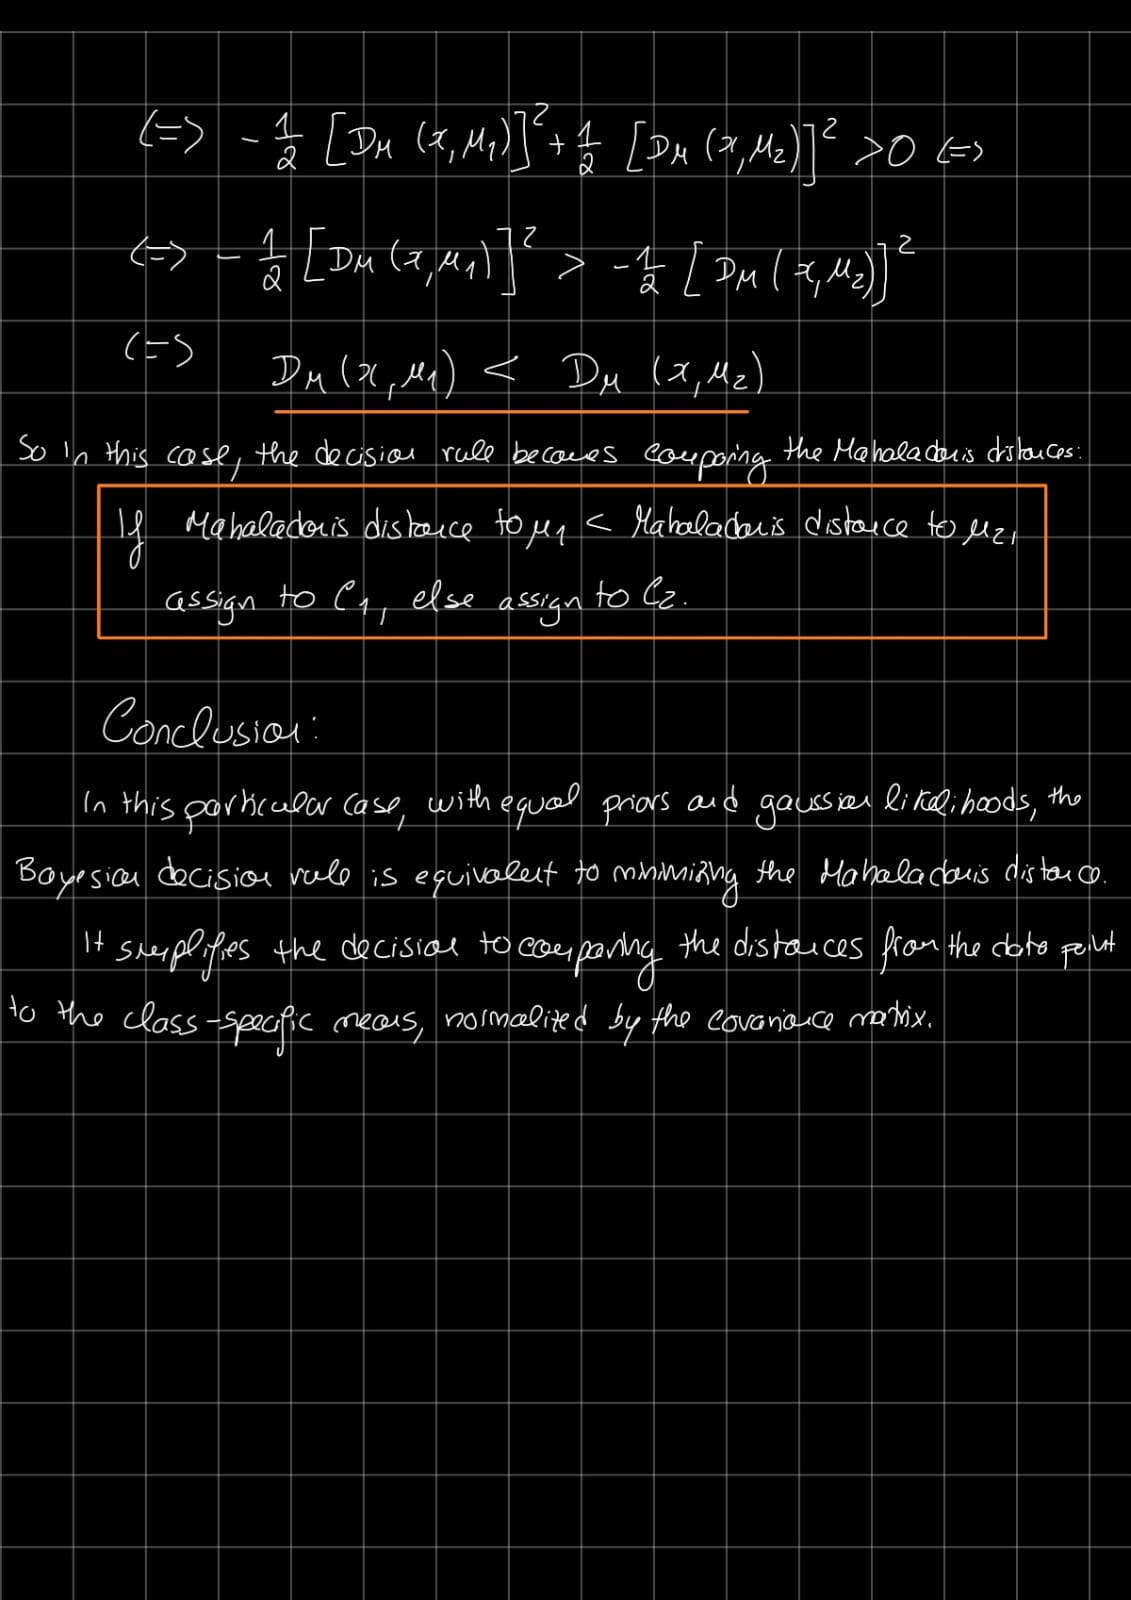 (=>) -1/2 [D_M (x, μ_1)]^2 + 1/2 [D_M (x, μ_2)]^2 > 0 <=>
<=> -1/2 [D_M (x, μ_1)]^2 > -1/2 [D_M (x, μ_2)]^2
<=> D_M (x, μ_1) < D_M (x, μ_2)
So in this case, the decision rule becomes comparing the Mahaladonis distances:
If Mahaladonis distance to μ_1 < Mahaladonis distance to μ_2,
assign to C_1, else assign to C_2.
Conclusion:
In this particular case, with equal priors and gaussian likelihoods, the
Bayesian decision rule is equivalent to minimizing the Mahaladonis distance.
It simplifies the decision to comparing the distances from the data point
to the class-specific means, normalized by the covariance matrix.